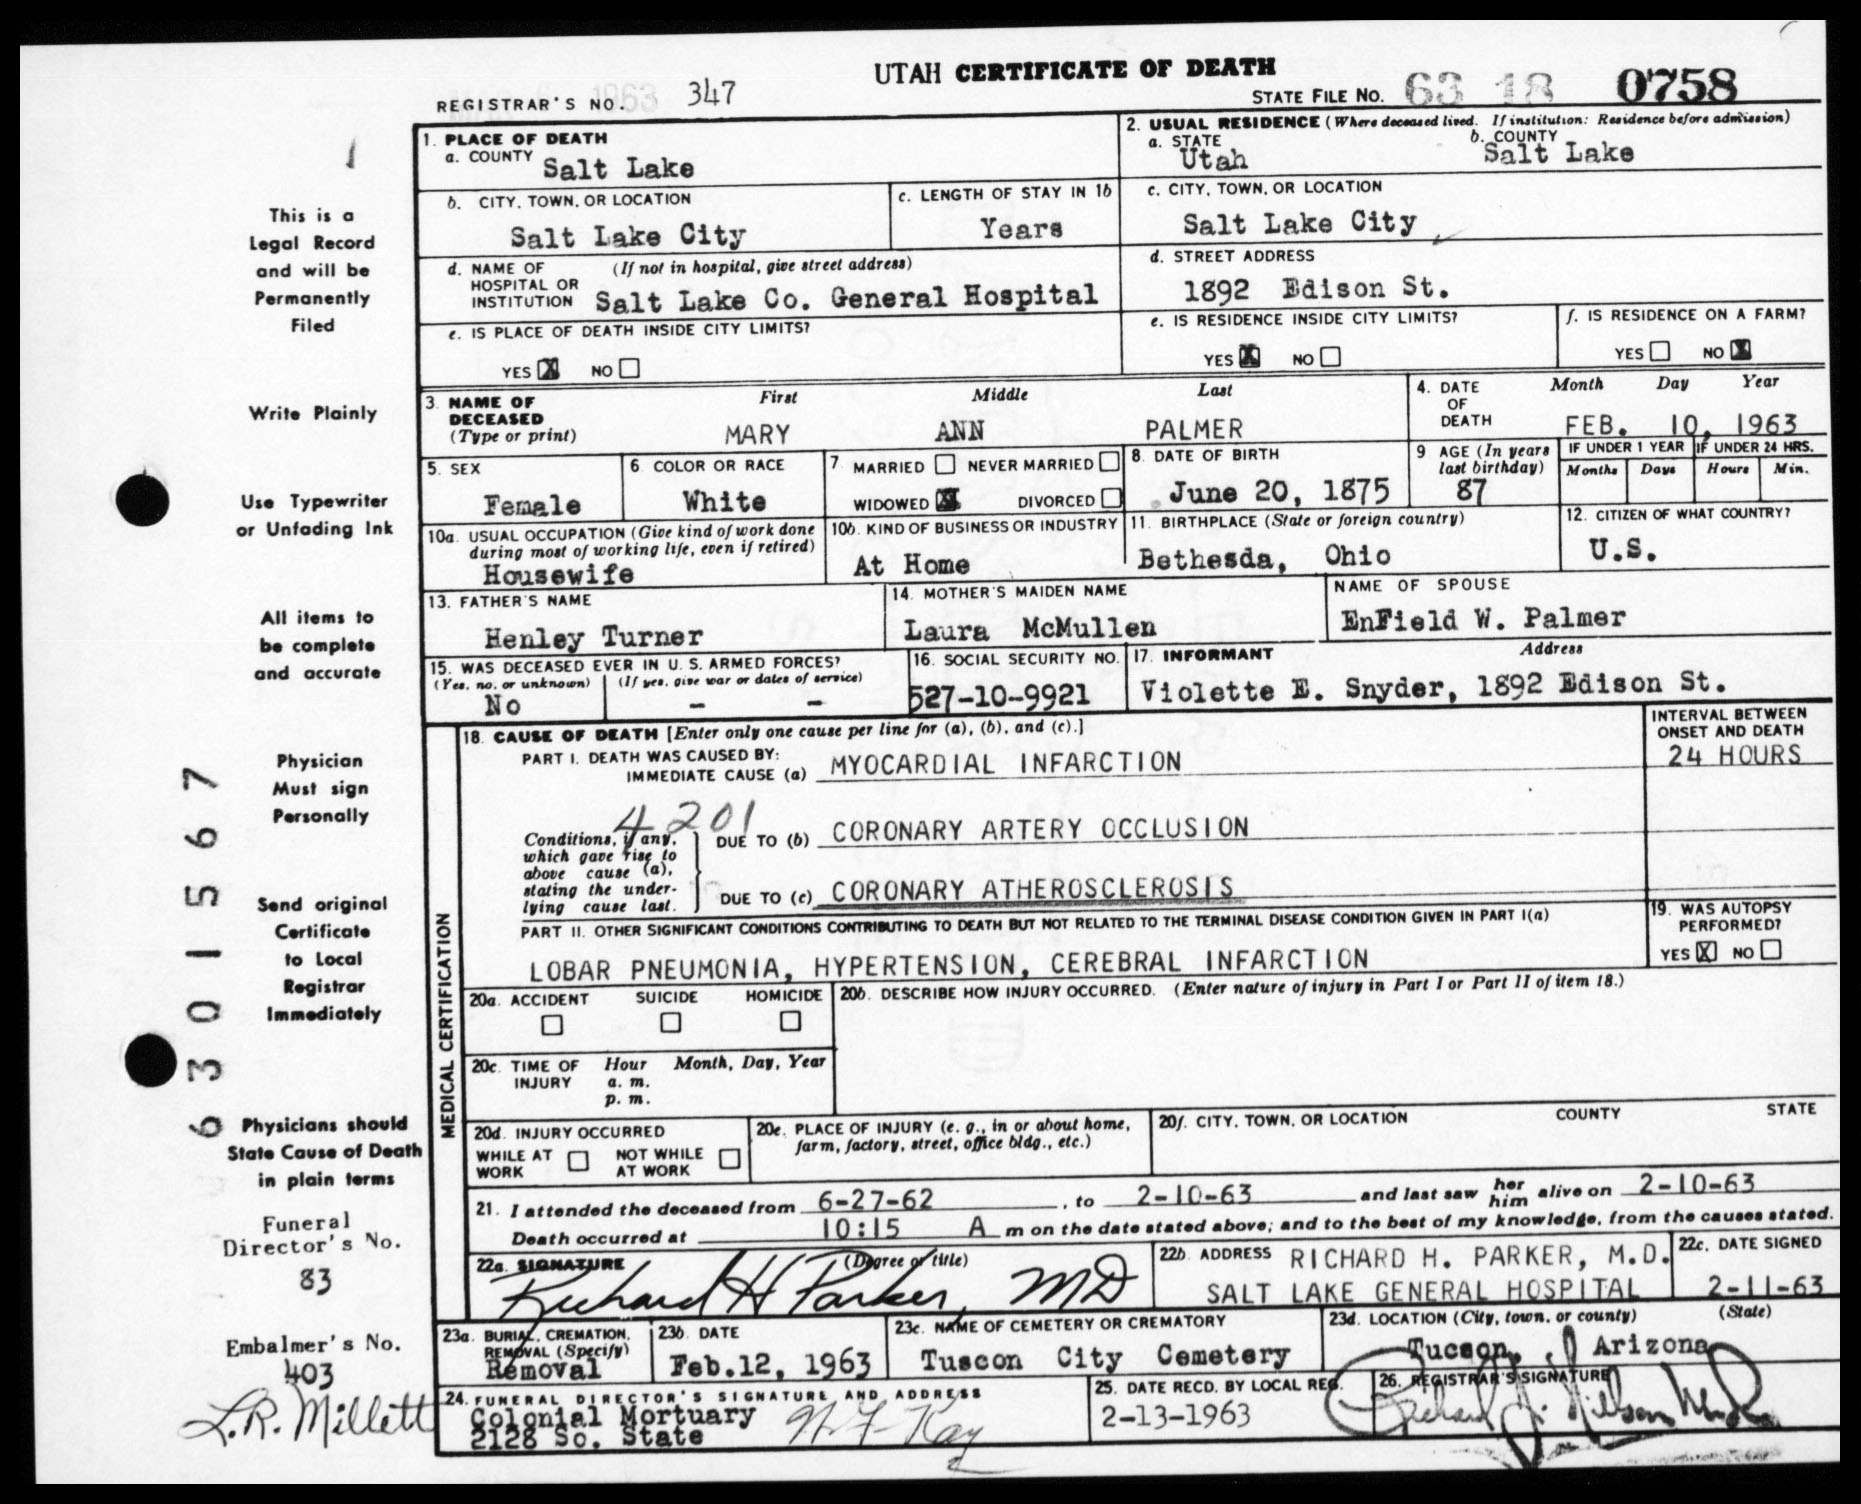 UTAH CERTIFICATE OF DEATH
REGISTRAR'S NO. 347
STATE FILE NO. 63 18 0758
1. PLACE OF DEATH
a. COUNTY Salt Lake
2. USUAL RESIDENCE (Where deceased lived. If institution: Residence before admission)
a. STATE Utah
b. COUNTY Salt Lake
b. CITY, TOWN, OR LOCATION Salt Lake City
c. LENGTH OF STAY IN 1b Years
c. CITY, TOWN, OR LOCATION Salt Lake City
d. NAME OF HOSPITAL OR INSTITUTION (If not in hospital, give street address) Salt Lake Co. General Hospital
d. STREET ADDRESS 1892 Edison St.
e. IS PLACE OF DEATH INSIDE CITY LIMITS?
YES X NO
e. IS RESIDENCE INSIDE CITY LIMITS?
YES X NO
f. IS RESIDENCE ON A FARM?
YES NO X
3. NAME OF DECEASED (Type or print)
First Middle Last
MARY ANN PALMER
4. DATE OF DEATH Month Day Year
FEB. 10, 1963
5. SEX Female
6 COLOR OR RACE White
7 MARRIED NEVER MARRIED
WIDOWED X DIVORCED
8. DATE OF BIRTH June 20, 1875
9 AGE (In years last birthday) 87
IF UNDER 1 YEAR Months Days
IF UNDER 24 HRS. Hours Min.
10a. USUAL OCCUPATION (Give kind of work done during most of working life, even if retired)
Housewife
10b. KIND OF BUSINESS OR INDUSTRY
At Home
11. BIRTHPLACE (State or foreign country)
Bethesda, Ohio
12. CITIZEN OF WHAT COUNTRY?
U.S.
13. FATHER'S NAME
Henley Turner
14. MOTHER'S MAIDEN NAME
Laura McMullen
NAME OF SPOUSE
EnField W. Palmer
15. WAS DECEASED EVER IN U. S. ARMED FORCES?
(Yes, no, or unknown) (If yes, give war or dates of service)
No - -
16. SOCIAL SECURITY NO.
527-10-9921
17. INFORMANT Address
Violette E. Snyder, 1892 Edison St.
MEDICAL CERTIFICATION
18. CAUSE OF DEATH [Enter only one cause per line for (a), (b), and (c).]
INTERVAL BETWEEN ONSET AND DEATH
PART I. DEATH WAS CAUSED BY:
IMMEDIATE CAUSE (a) MYOCARDIAL INFARCTION 24 HOURS
4201
Conditions, if any, which gave rise to above cause (a), stating the underlying cause last.
DUE TO (b) CORONARY ARTERY OCCLUSION
DUE TO (c) CORONARY ATHEROSCLEROSIS
PART II. OTHER SIGNIFICANT CONDITIONS CONTRIBUTING TO DEATH BUT NOT RELATED TO THE TERMINAL DISEASE CONDITION GIVEN IN PART I(a)
LOBAR PNEUMONIA, HYPERTENSION, CEREBRAL INFARCTION
19. WAS AUTOPSY PERFORMED?
YES X NO
20a. ACCIDENT SUICIDE HOMICIDE
20b. DESCRIBE HOW INJURY OCCURRED. (Enter nature of injury in Part I or Part II of item 18.)
20c. TIME OF INJURY Hour Month, Day, Year
a. m.
p. m.
20d. INJURY OCCURRED
WHILE AT WORK NOT WHILE AT WORK
20e. PLACE OF INJURY (e. g., in or about home, farm, factory, street, office bldg., etc.)
20f. CITY, TOWN, OR LOCATION COUNTY STATE
21. I attended the deceased from 6-27-62, to 2-10-63 and last saw her him alive on 2-10-63
Death occurred at 10:15 A m on the date stated above; and to the best of my knowledge, from the causes stated.
22a. SIGNATURE (Degree or title)
Richard H Parker, MD
22b. ADDRESS RICHARD H. PARKER, M.D.
SALT LAKE GENERAL HOSPITAL
22c. DATE SIGNED
2-11-63
23a. BURIAL, CREMATION, REMOVAL (Specify)
Removal
23b. DATE
Feb.12, 1963
23c. NAME OF CEMETERY OR CREMATORY
Tuscon City Cemetery
23d. LOCATION (City, town, or county) (State)
Tucson, Arizona
24. FUNERAL DIRECTOR'S SIGNATURE AND ADDRESS
Colonial Mortuary
2128 So. State
25. DATE RECD. BY LOCAL REG.
2-13-1963
26. REGISTRAR'S SIGNATURE
This is a
Legal Record
and will be
Permanently
Filed
Write Plainly
Use Typewriter
or Unfading Ink
All items to
be complete
and accurate
Physician
Must sign
Personally
Send original
Certificate
to Local
Registrar
Immediately
Physicians should
State Cause of Death
in plain terms
Funeral
Director's No.
83
Embalmer's No.
403
L.R. Millett
6301567